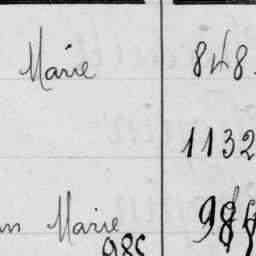 Marie 848
1132
Marie 984
985